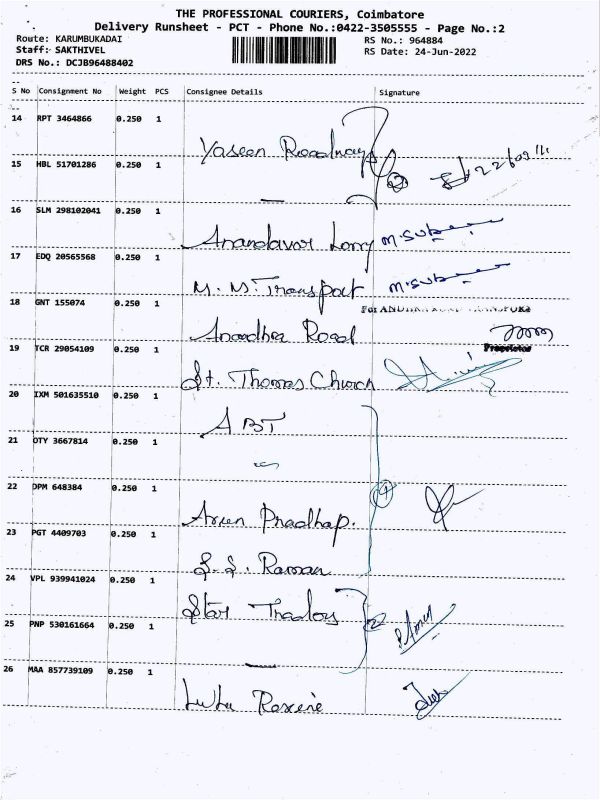 THE PROFESSIONAL COURIERS, Coimbatore
Delivery Runsheet - PCT - Phone No.:0422-3505555 - Page No.:2
Route: KARUMBUKADAI RS No.: 964884
Staff: SAKTHIVEL RS Date: 24-Jun-2022
DRS No.: DCJB96488402
S No Consignment No Weight PCS Consignee Details Signature
14 RPT 3464866 0.250 1 Yaseen Roadway
15 HBL 51701286 0.250 1 —
16 SLM 298102041 0.250 1 Anandavar Lorry
17 EDQ 20565568 0.250 1 M. M. Transport
18 GNT 155074 0.250 1 Aandhra Road
For ANDHRA ROAD
Proprietor
19 TCR 29054109 0.250 1 St. Thomas Church
20 IXM 501635510 0.250 1 ABT
21 OTY 3667814 0.250 1
22 DPM 648384 0.250 1 Arun Pradhap.
23 PGT 4409703 0.250 1 S.S. Raman
24 VPL 939941024 0.250 1 Star Tradors
25 PNP 530161664 0.250 1 —
26 MAA 857739109 0.250 1